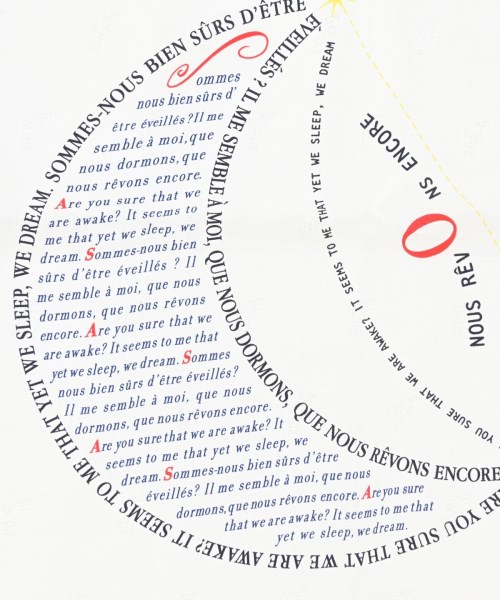 SOMMES-NOUS BIEN SÛRS D'ÊTRE
ÉVEILLÉS ? IL ME SEMBLE À MOI, QUE NOUS DORMONS, QUE NOUS RÊVONS ENCORE
ARE YOU SURE THAT WE ARE AWAKE? IT SEEMS TO ME THAT YET WE SLEEP, WE DREAM.
Sommes
nous bien sûrs d'
être éveillés ? Il me
semble à moi, que
nous dormons, que
nous rêvons encore.
Are you sure that we
are awake? It seems to
me that yet we sleep, we
dream. Sommes-nous bien
sûrs d'être éveillés ? Il
me semble à moi, que nous
dormons, que nous rêvons
encore. Are you sure that we
are awake? It seems to me that
yet we sleep, we dream. Sommes
nous bien sûrs d'être éveillés?
Il me semble à moi, que nous
dormons, que nous rêvons encore.
Are you sure that we are awake? It
seems to me that yet we sleep, we
dream. Sommes-nous bien sûrs d'être
éveillés? Il me semble à moi, que nous
dormons, que nous rêvons encore. Are you sure
that we are awake? It seems to me that
yet we sleep, we dream.
YOU SURE THAT WE ARE AWAKE? IT SEEMS TO ME THAT YET WE SLEEP, WE DREAM
NOUS RÊVONS ENCORE